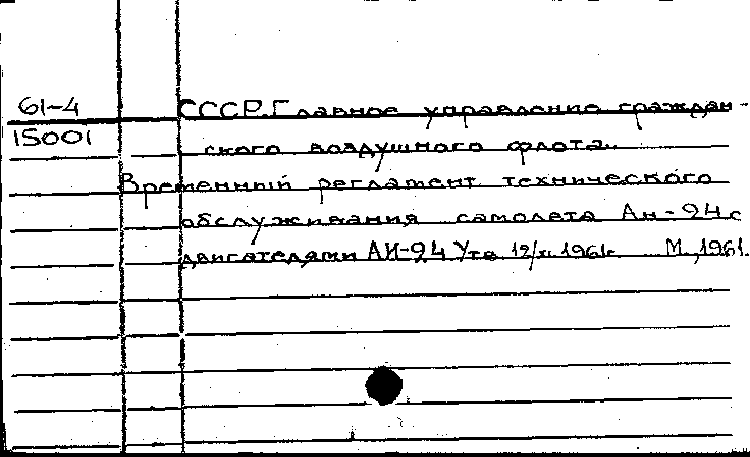 61-4 СССР. Главное управление граждан-
15001 ского воздушного флота.
Временный регламент технического
обслуживания самолета Ан-24 с
двигателями АИ-24 Утв 12/x 1961г. М., 1961.